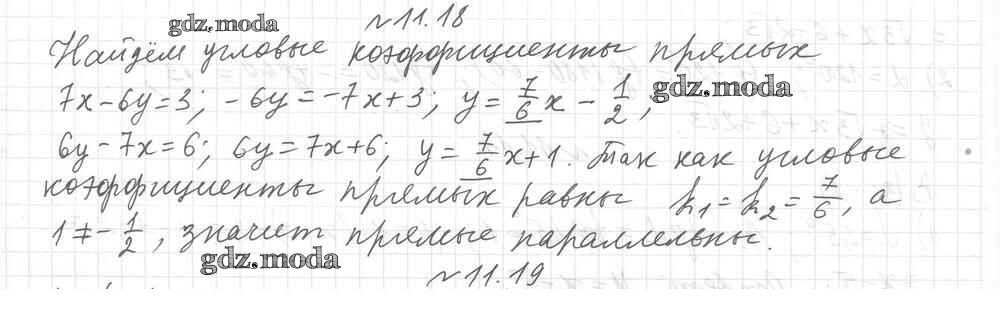 gdz.moda
№11.18
Найдём угловые коэффициенты прямых
7x-6y=3; -6y=-7x+3; y=7/6x-1/2;
gdz.moda
6y-7x=6; 6y=7x+6; y=7/6x+1. Так как угловые
коэффициенты прямых равны k₁=k₂=7/6, а
1≠-1/2, значит прямые параллельны.
gdz.moda
№11.19